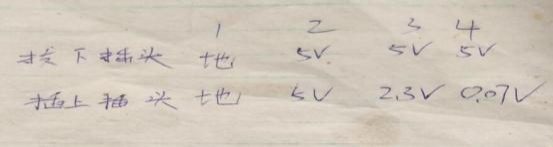 1 2 3 4
拔下插头 地 5V 5V 5V
插上插头 地 5V 2.3V 0.07V